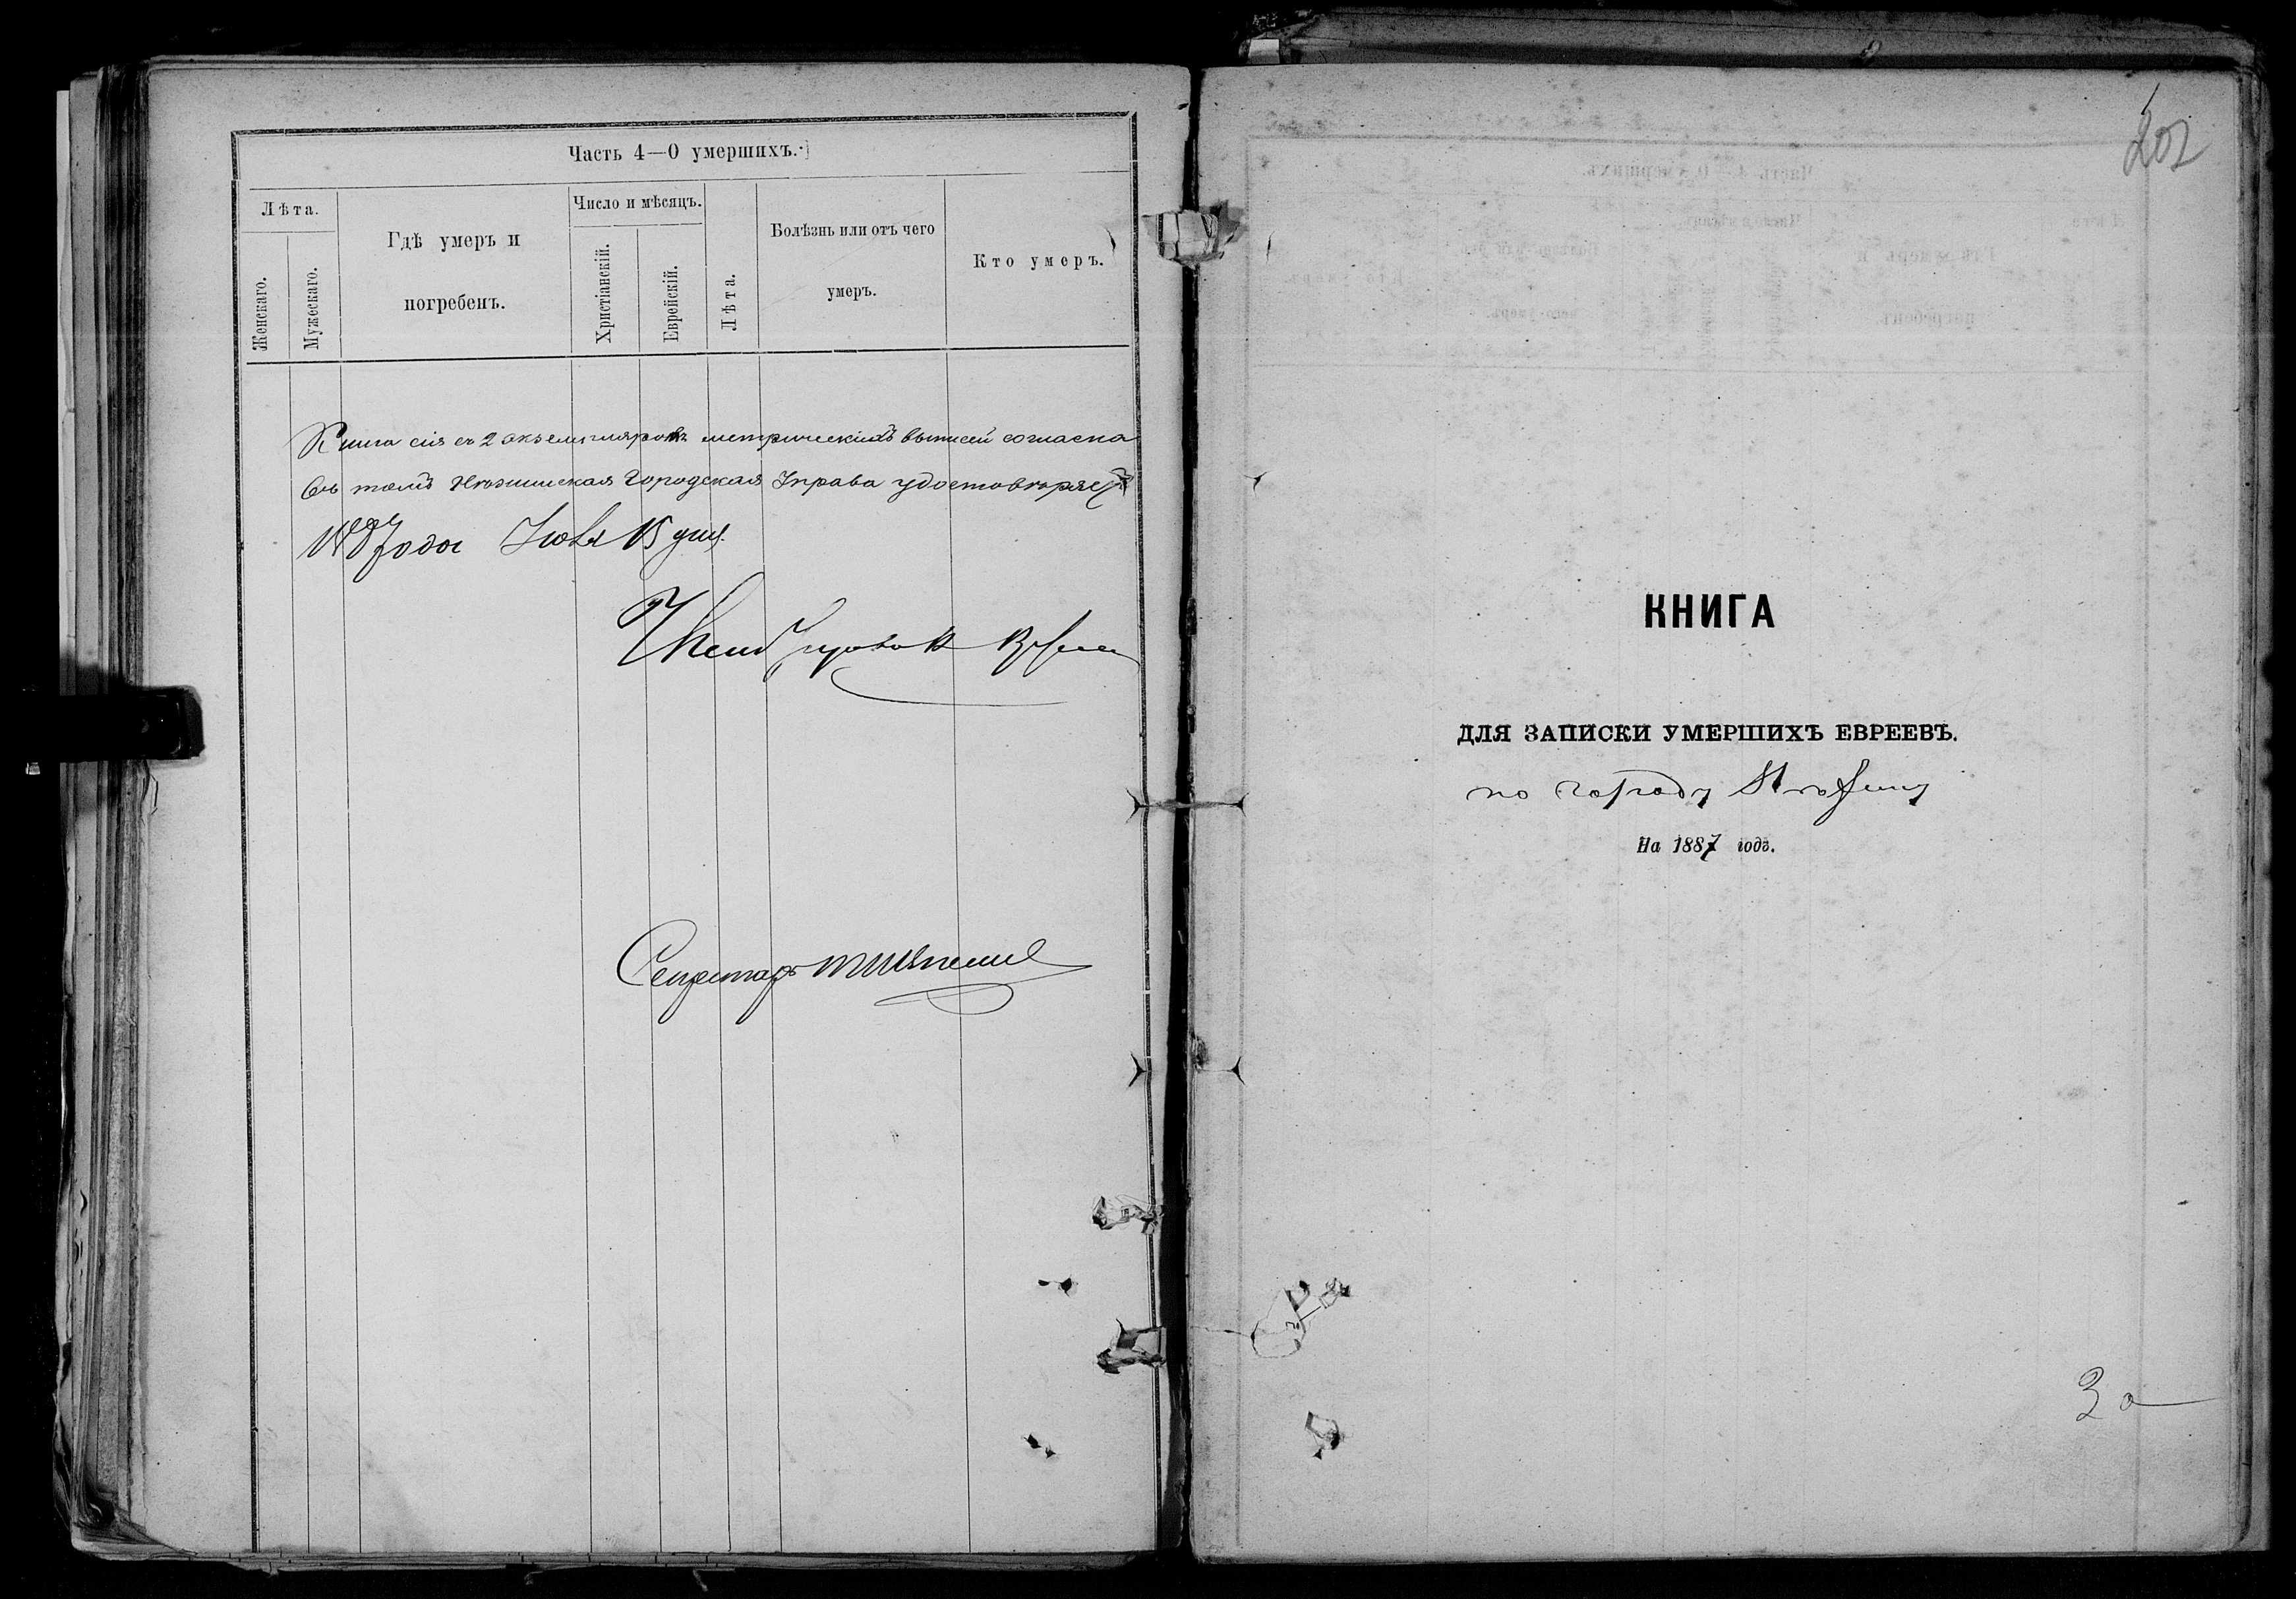 Часть 4—О умершихъ.
Лѣта.
Женскаго.
Мужескаго.
Гдѣ умеръ и
погребенъ.
Число и мѣсяцъ.
Христіанскій.
Еврейскій.
Лѣта.
Болѣзнь или отъ чего
умеръ.
Кто умеръ.
Книга сія съ 2 экземпляровъ метрическихъ выписей согласна
въ томъ Нѣжинская Городская Управа удостовѣряетъ
1887 года 15 дня.
Членъ Управы
Секретарь
202
КНИГА
ДЛЯ ЗАПИСКИ УМЕРШИХЪ ЕВРЕЕВЪ.
по городу Нѣжину
На 1887 годъ.